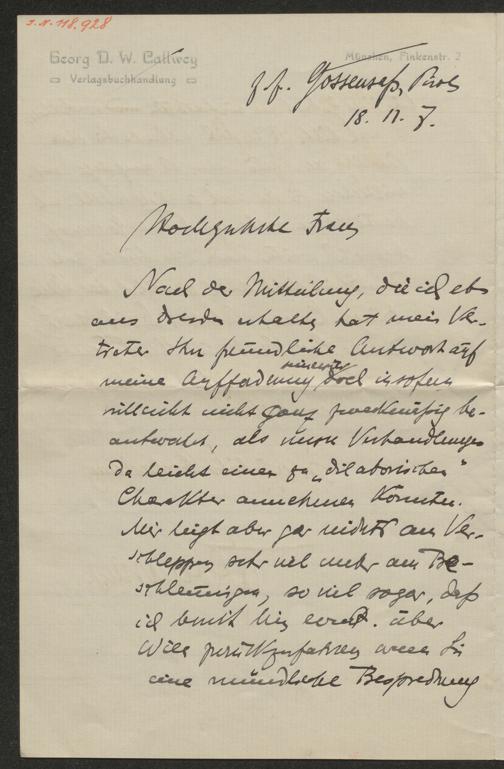 J.N. 118.928
Georg D. W. Callwey
Verlagsbuchhandlung
München, Finkenstr. 2
z. Z. Gossensaß, Tirol
18. 11. 7.
Hochgeehrte Frau,
Nach der Mitteilung, die ich eben
aus Dresden erhalte, hat mein Ver-
treter Ihre freundliche Antwort auf
meine Aufforderung doch insofern
vielleicht nicht ganz zweckmäßig be-
antwortet, als unsre Verhandlungen
da leicht einen zu „dilatorischen"
Charakter annehmen könnten.
Mir liegt aber gar nichts am Ver-
schleppen, sehr viel mehr am Be-
schleunigen, so viel sogar, daß
ich bereit bin, event. über
Wien zurückzufahren, wenn Sie
eine mündliche Besprechung